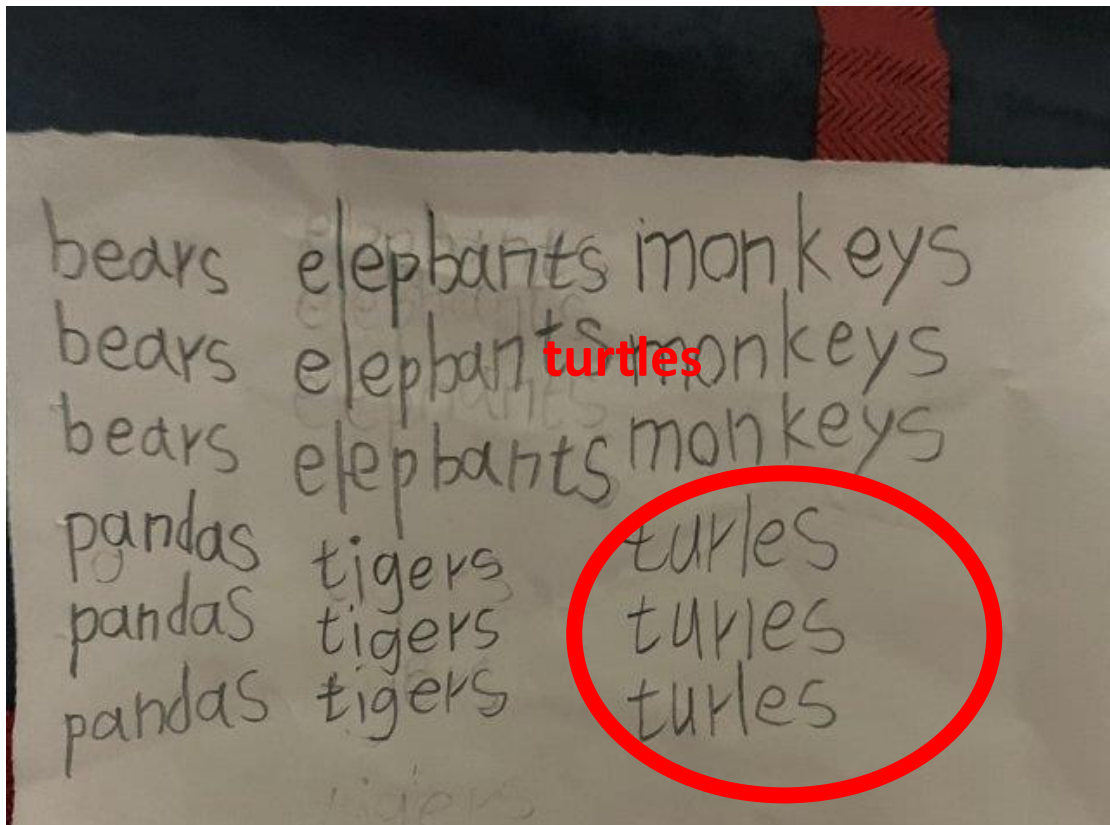 bears elephants monkeys
bears elephants monkeys
turtles
bears elephants monkeys
pandas tigers turles
pandas tigers turles
pandas tigers turles
tigers